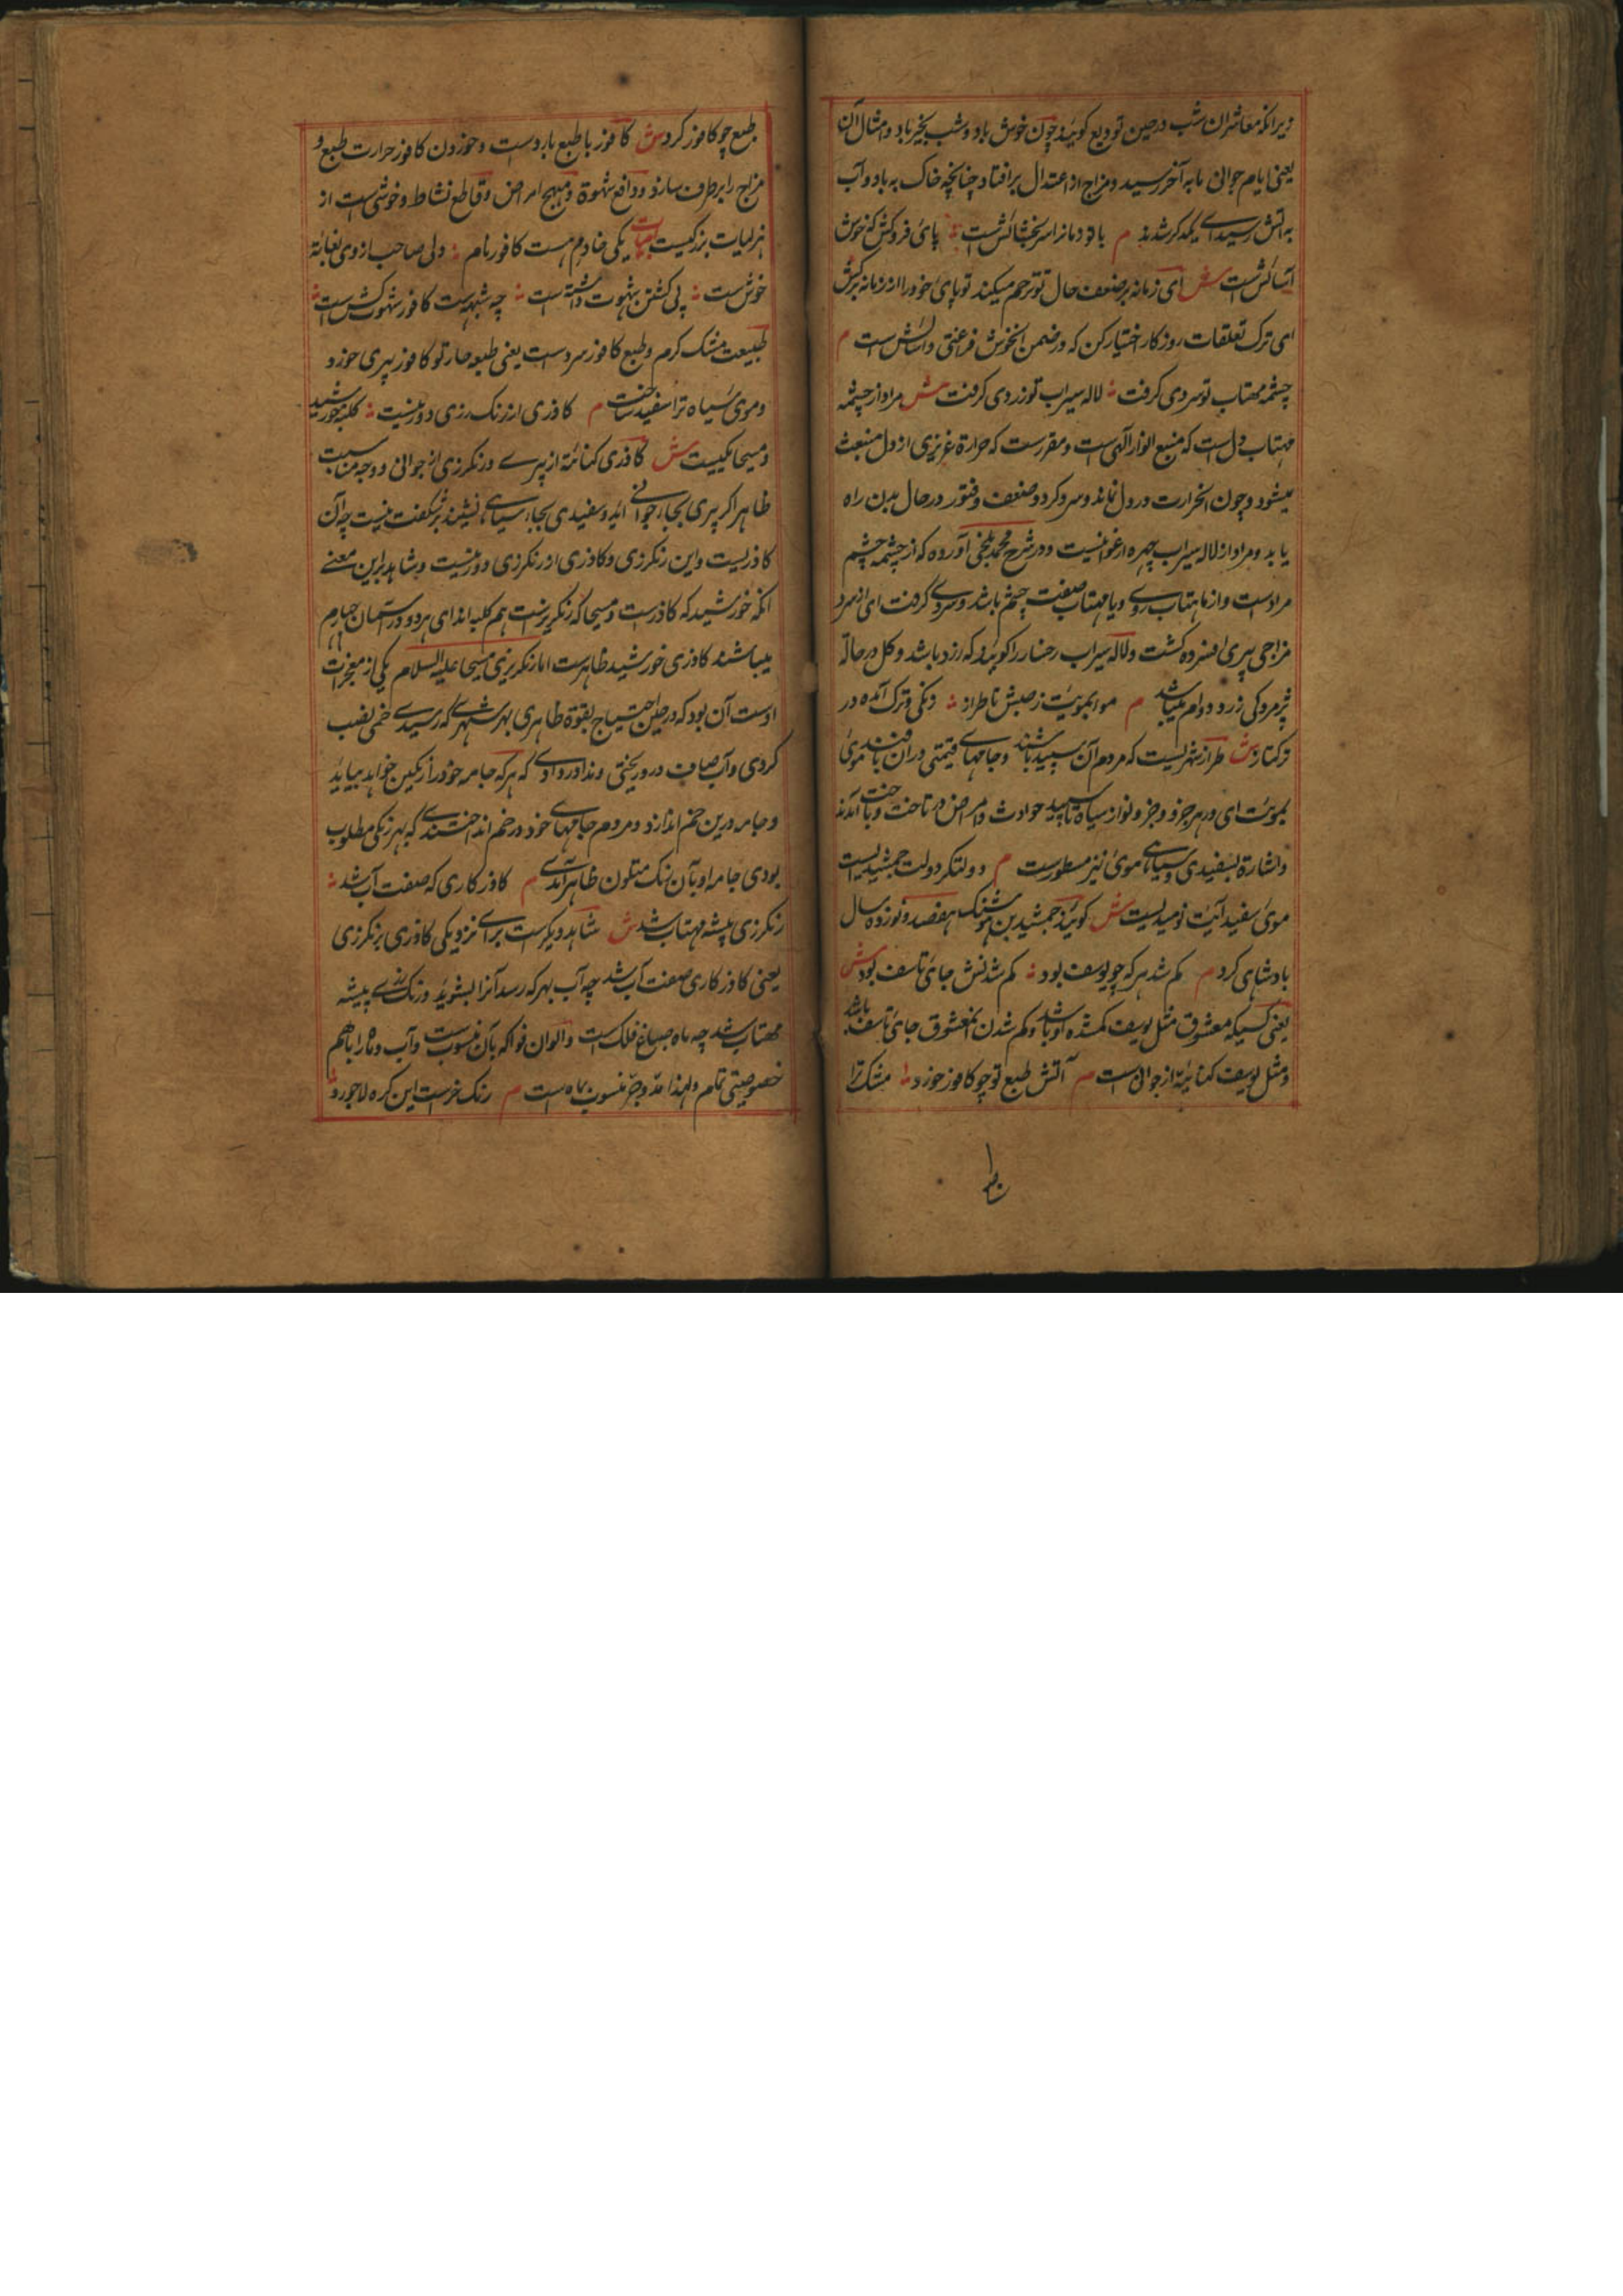 زیرانکه معاشران شب درحین تودیع کویند چون خوش باد و شب بخیر باد و امثال آن
یعنی ایام جوانی ما به آخر رسید و مزاج از اعتدال بر افتاد چنانچه خاک به باد و آب
به اتش رسید ای یکدکر شدند م با تو زمانرا سر بخشائش است پای فروکش که خوش
آسائش است ش ای زمانه بر ضعف حال تو ترحم میکند تو پای خود را از زمانه برکش
ای ترک تعلقات روزکار اختیار کن که در ضمن آن خوش فراغتی و آسائش است م
چشمه مهتاب تو سردی کرفت لاله سیراب تو زردی کرفت ش مراد از چشمه
مهتاب دل است که منبع انوار الهی است و مقررست که حرارة غریزی از دل منبعث
میشود و چون آن حرارت در دل نماند و سرد کردد ضعف و فتور در حال بدن راه
یابد و مراد از لاله سیراب چهره ارغوانیست و در شرح محمد بلخی آورده که از چشمه چشم
مرادست و از ماهتاب روی و یا مهتاب صفت چشم باشد و سردی کرفت ای از سرد
مزاجی پیری افسرده کشت و لاله سیراب رخسار را کویند که زرد باشد و کل در حالة
پژمردکی زرد و وام میباشد م موی بمویت ز حبش تا طراز زنکی و ترک آمده در
ترکتاز ش طراز شهریست که مردم آن سپید باشند و جامهای قیمتی دران بافند موی
بمویت ای در هر جزو و جزو تو از سیاه تا سپید حوادث و امراض در تاخت و باخت آمدند
و اشارة بسفیدی و سیاهی موی نیز مسطورست م دولت اکر دولت جمشیدیست
موی سفید آیت نومیدیست ش کویند جمشید بن هوشنک هفصد و نوزده سال
بادشاهی کرد م کم شد هر که چو یوسف بود کم شدنش جای تاسف بود ش
یعنی کسیکه معشوق مثل یوسف کمشده او باشد و کم شدن آن معشوق جای تاسف باشد
و مثل یوسف کنایة از جوانی است م آتش طبع تو چو کافور خورد مشک ترا
طبع چو کافور کرد ش کافور با طبع باردست و خوردن کافور حرارت طبع و
مزاج را برطرف سازد و دافع شهوة و مهیج امراض و قاطع نشاط و خوشی است از
هزلیات بزرکیست ابیات یکی خادم هست کافور نام ولی صاحب از وی بغایة
خوش است پی کشتن شهوت داشته است چه شبهه است کافور شهوت کش است
طبیعت مشک کرم و طبع کافور سردست یعنی طبع حار تو کافور پیری خورد
و موی سیاه ترا سفید ساخت م کازری از رنک رزی دور نیست کلبه خورشید
و مسیحا یکیست ش کازری کنایة از پیری و رنکرزی از جوانی و وجه مناسبت
ظاهر اکر پیری بجای جوانی آید و سفیدی بجای سیاهی نشیند پر شکفت نیست چه آن
کازریست و این رنکرزی و کازری از رنکرزی دور نیست و شاهد براین معنی
آنکه خورشید که کازرست و مسیحا که رنکریزست هم کلبه اند ای هر دو در آسمان چهارم
میباشند کازری خورشید ظاهرست اما رنکریزی مسیحا علیه السلام یکی از معجزات
اوست آن بود که در حین احتیاج بقوة ظاهری بهر شهری که رسیدی خمی نصب
کردی و آب صاف درو ریختی و ندا در دادی که هر که جامه خود را رنکین خواهد بیاید
و جامه درین خم اندازد و مردم جامهای خود در خم انداختندی که بهر رنکی مطلوب
بودی جامه او بآن رنک متلون ظاهر آمدی م کازر کاری که صفت آب شد
رنکرزی پیشه مهتاب شد ش شاهد دیکرست برای نزدیکی کازری برنکرزی
یعنی کازر کاری صفت آب شد چه آب بهر که رسد آنرا بشوید و رنک رزی پیشه
مهتاب شد چه ماه صباغ فلک است و الوان فواکه بآن منسوب است و آب و ماه را باهم
خصوصیتی تمام و لهذا مد و جزر منسوب بماه است م رنک خرست این کره لاجورد